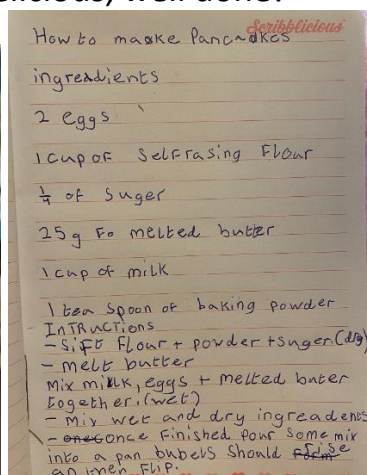 delicious, well done!
Scribblicious
How to maske Pancakes
ingreadients
2 eggs
1 cup of Selfrasing Flour
1/4 of suger
25g Fo melted butter
1 cup of milk
1 tea spoon of baking powder
InTRUCTIONS
- Sift Flour + powder + suger (dry)
- melt butter
mix milk, eggs + melted buter
together. (wet)
- Mix wet and dry ingreadents
- once Finished pour some mix
into a pan bubels should rise
an then Flip.